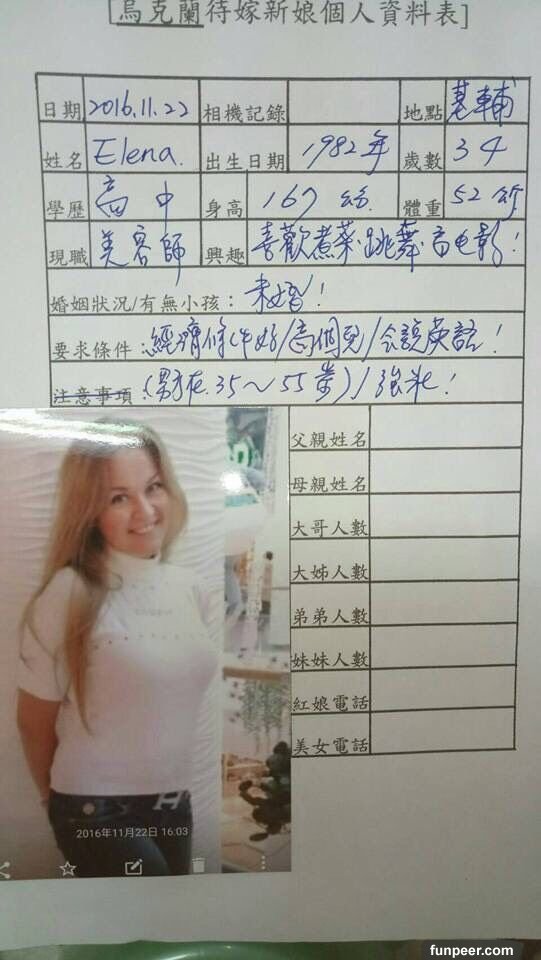 [烏克蘭待嫁新娘個人資料表]
日期 2016.11.22 相機記錄 地點 基輔
姓名 Elena. 出生日期 1982年 歲數 34
學歷 高中 身高 167公分 體重 52公斤
現職 美容師 興趣 喜歡煮菜.跳舞.看电影!
婚姻狀況/有無小孩: 未婚!
要求條件: 經濟條件好/高個兒/会説英語!
注意事項: (男方在35~55歲)/強壯!
父親姓名
母親姓名
大哥人數
大姊人數
弟弟人數
妹妹人數
紅娘電話
美女電話
2016年11月22日 16:03
funpeer.com